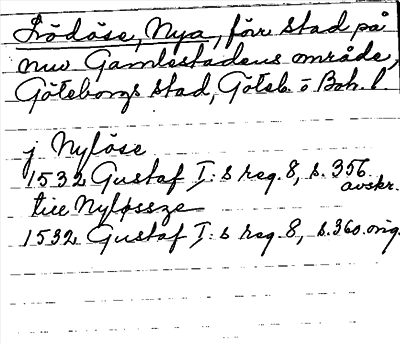 Lödöse, Nya, förr stad på
nuv Gamlestadens område,
Göteborgs stad, Göteb. o Boh. l.
j Nylöse
1532 Gustaf I: s reg. 8, s. 356
avskr.
till Nyløssze
1532 Gustaf I: s reg. 8, s. 360. orig.